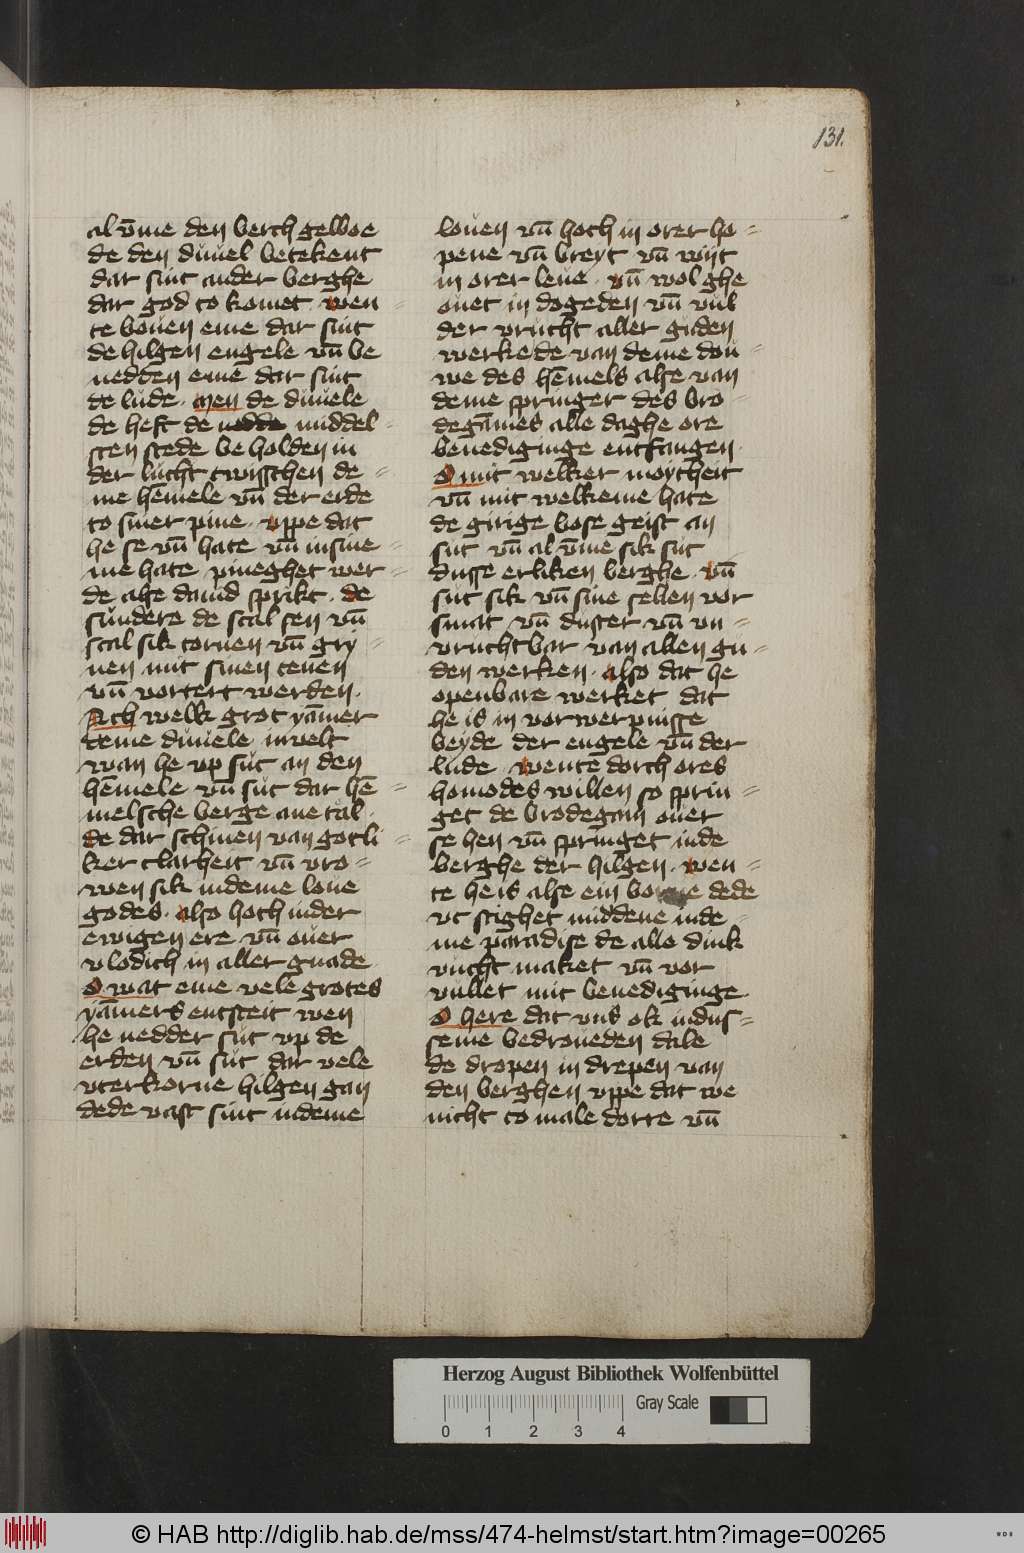 131.
al v̄me den berch gelboe
de den duuel betekent
dar sint ander berghe
dar god to komet . wen
te bouen eme dar sint
de hilgen engele vn̄ be
nedden eme dar sint
de lude . Men de duuele
de heft de middel=
sten stede beholden in
der lucht twisschen de=
me hēmele vn̄ der erde
to siner pine . vppe dat
he se vn̄ hate vn̄ in sine=
me hate pineghet wer=
de alse dauid sprikt . de
sundere de scal sen vn̄
scal sik tornen vn̄ gry=
nen mit sinen tenen
vn̄ vortert werden .
Ach welk grot yām̄er
deme duuele invelt
wan he vp sut an den
hēmele vn̄ sut dar hē=
melsche berge ane tal .
de dar schinen van gotli=
ker clarheit vn̄ vro=
wen sik in deme loue
godes . also hoch in der
ewigen ere vn̄ ouer
vlodich in aller gnade
O wat eme vele grotes
yāmers entsteit wen
he nedder sut vp de
erden vn̄ sut dar vele
vterkorne hilgen gan
dede vast sint in deme
louen vn̄ hoch in orer ho=
pene vn̄ breyt vn̄ wijt
in orer leue . vn̄ wol ghe
ouet in dogeden vn̄ vul
der vrucht aller guden
werke de van deme dou=
we des hēmels alse van
deme springer des bro=
degāmes alle daghe ore
benediginge entfangen .
O mit welker moytheit
vn̄ mit welkeme hate
de girige bose geist an
sut vn̄ al v̄me sik sut
dusse erliken berghe . vn̄
sut sik vn̄ sine sellen vor
smat vn̄ duster vn̄ vn=
vruchtbar van allen gu=
den werken . also dat he
openbare werket dat
he is in vorwerpnisse
beyde der engele vn̄ der
lude wente dorch ores
homodes willen so sprin=
get de brodegam ouer
se hen vn̄ springet in de
berghe der hilgen . wen=
te he is alse ein dede
vt stighet middene in de=
me paradise de alle dink
vucht maket vn̄ vor
vullet mit benediginge .
O here dat vns ok in dus=
seme bedroueden dale
de dropen in drepen van
den berghen vppe dat we
nicht to male dorre vn̄
Herzog August Bibliothek Wolfenbüttel
Gray Scale
0 1 2 3 4
© HAB http://diglib.hab.de/mss/474-helmst/start.htm?image=00265